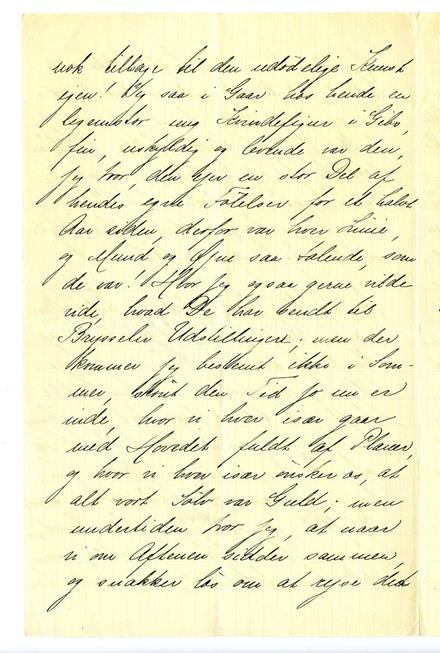 nok tilbage til den udødelige Kunst
igen! Jeg saa i Gaar hos hende en
legemstor ung Kvindefigur i Gibs,
fin, uskyldig og levende var den,
jeg tror, den ejer en stor Del af
hendes egne Følelser for et halvt
Aar siden, derfor var hver Linie,
og Mund og Øjne saa talende, som
de var! Hvor jeg ogsaa gerne vilde
vide, hvad De har sendt til
Brysseler Udstillingen; men der
kommer jeg bestemt ikke i Som-
mer, skønt den Tid jo nu er
inde, hvor vi hver især gaar
med Hovedet fuldt af Planer,
og hvor vi hver især ønsker os, at
alt vort Sølv var Guld; men
undertiden tror jeg, at naar
vi om Aftenen sidder sammen,
og snakker løs om at rejse